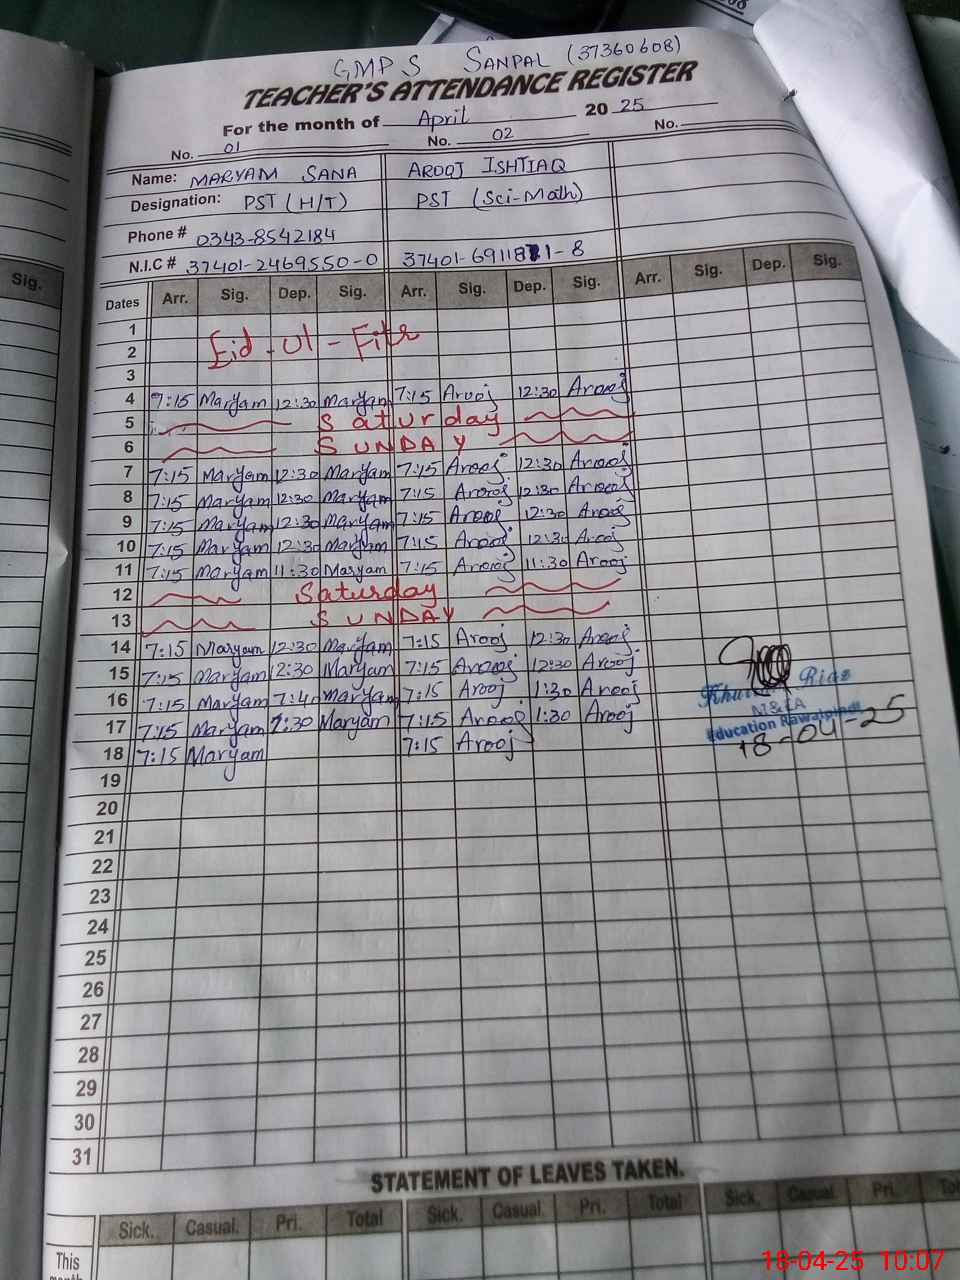 GMPS SANPAL (37360608)
TEACHER'S ATTENDANCE REGISTER
For the month of April 2025
No. 01 No. 02 No.
Name: MARYAM SANA AROOJ ISHTIAQ
Designation: PST (H/T) PST (Sci-Math)
Phone # 0343-8542184
N.I.C # 37401-2469550-0 37401-6911871-8
Sig.
Dates Arr. Sig. Dep. Sig. Arr. Sig. Dep. Sig. Arr. Sig. Dep. Sig.
1
Eid-Ul-Fitr
2
3
4 7:15 Maryam 12:30 Maryam 7:15 Arooj 12:30 Arooj
5 Saturday
6 SUNDAY
7 7:15 Maryam 12:30 Maryam 7:15 Arooj 12:30 Arooj
8 7:15 Maryam 12:30 Maryam 7:15 Arooj 12:30 Arooj
9 7:15 Maryam 12:30 Maryam 7:15 Arooj 12:30 Arooj
10 7:15 Maryam 12:30 Maryam 7:15 Arooj 12:30 Arooj
11 7:15 Maryam 11:30 Maryam 7:15 Arooj 11:30 Arooj
12 Saturday
13 SUNDAY
14 7:15 Maryam 12:30 Maryam 7:15 Arooj 12:30 Arooj
15 7:15 Maryam 12:30 Maryam 7:15 Arooj 12:30 Arooj
16 7:15 Maryam 7:40 Maryam 7:15 Arooj 1:30 Arooj
17 7:15 Maryam 1:30 Maryam 7:15 Arooj 1:30 Arooj
18 7:15 Maryam 7:15 Arooj
Riaz
M&EA
Education Rawalpindi
18-04-25
19
20
21
22
23
24
25
26
27
28
29
30
31
STATEMENT OF LEAVES TAKEN.
Sick. Casual. Pri. Total Sick. Casual. Pri. Total Sick. Casual. Pri.
This
18-04-25 10:07